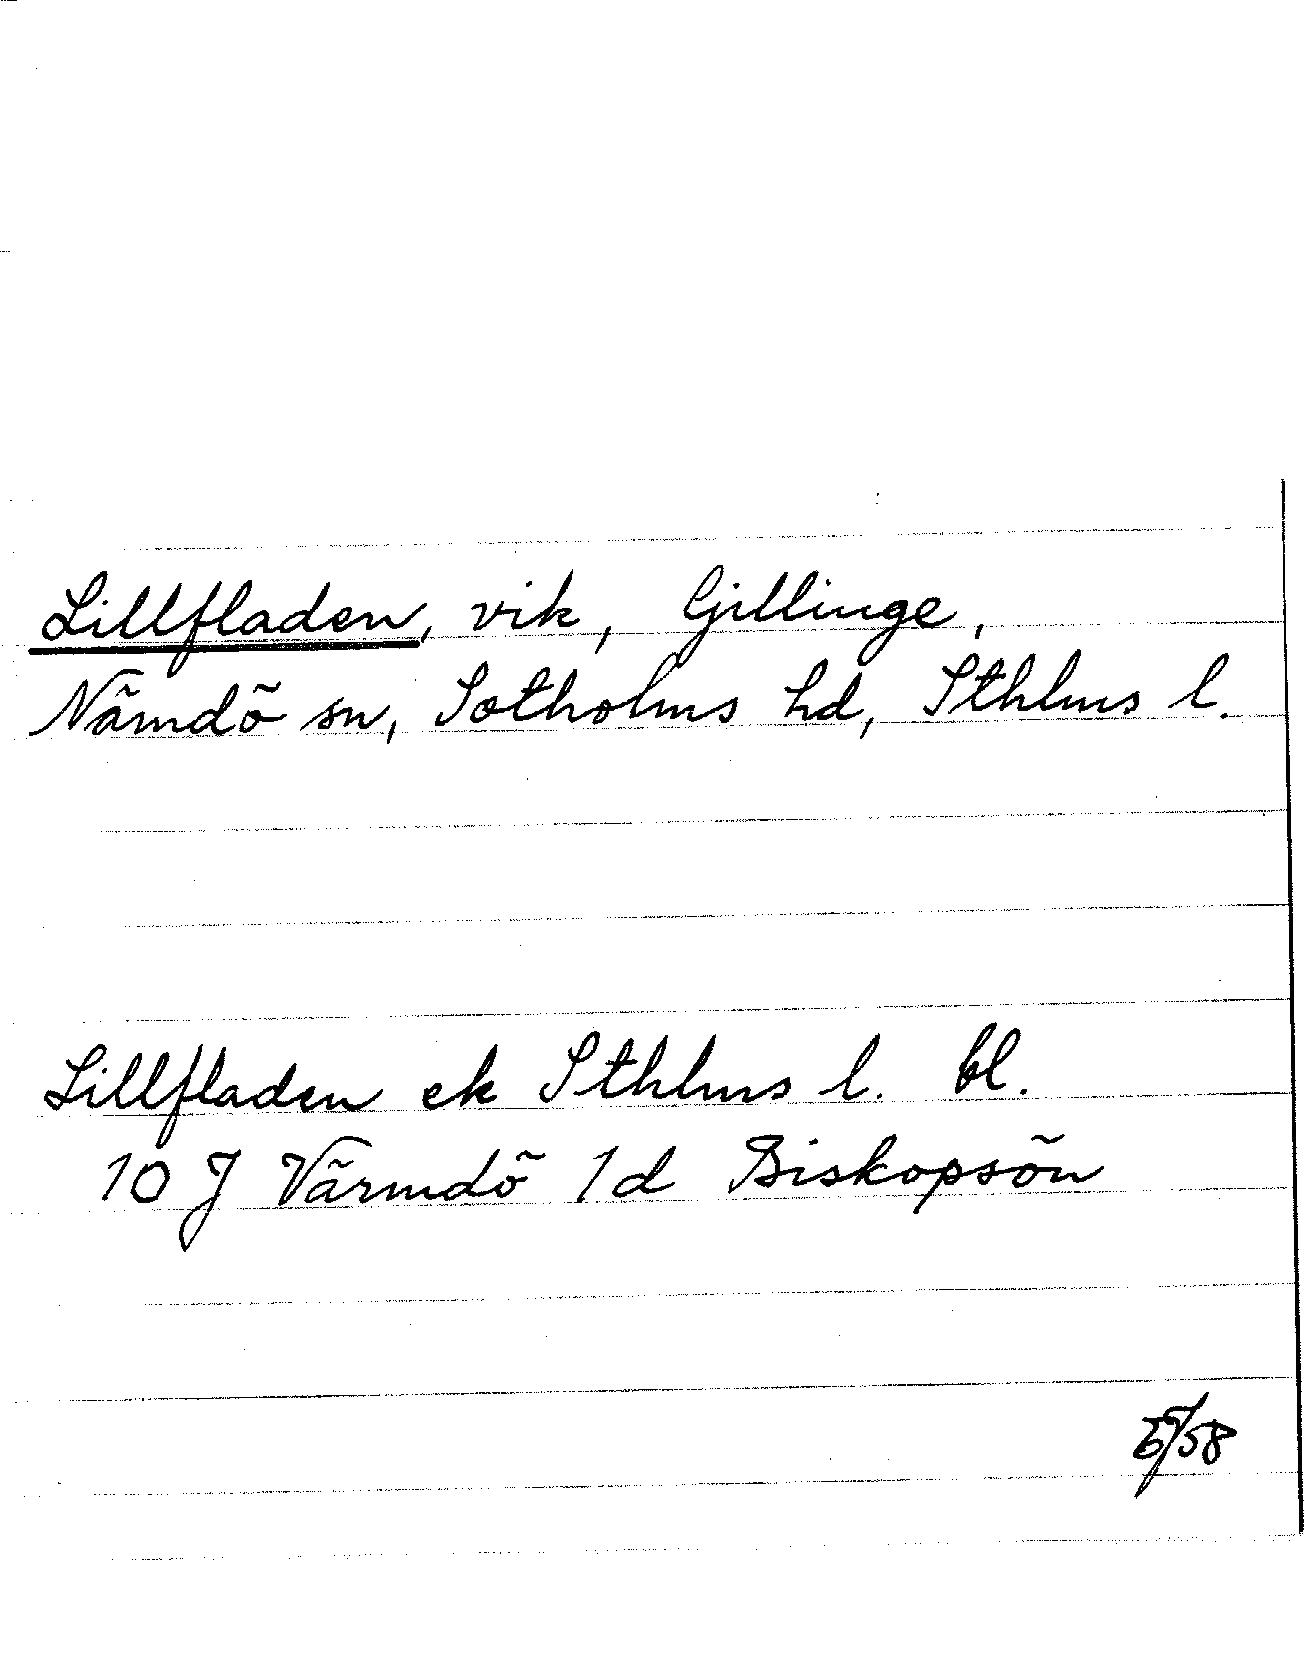 Lillfladen, vik, Gillinge,
Nämdö sn, Sotholms hd, Sthlms l.
Lillfladen ek Sthlms l. bl.
10 J Värmdö 1d Biskopsön